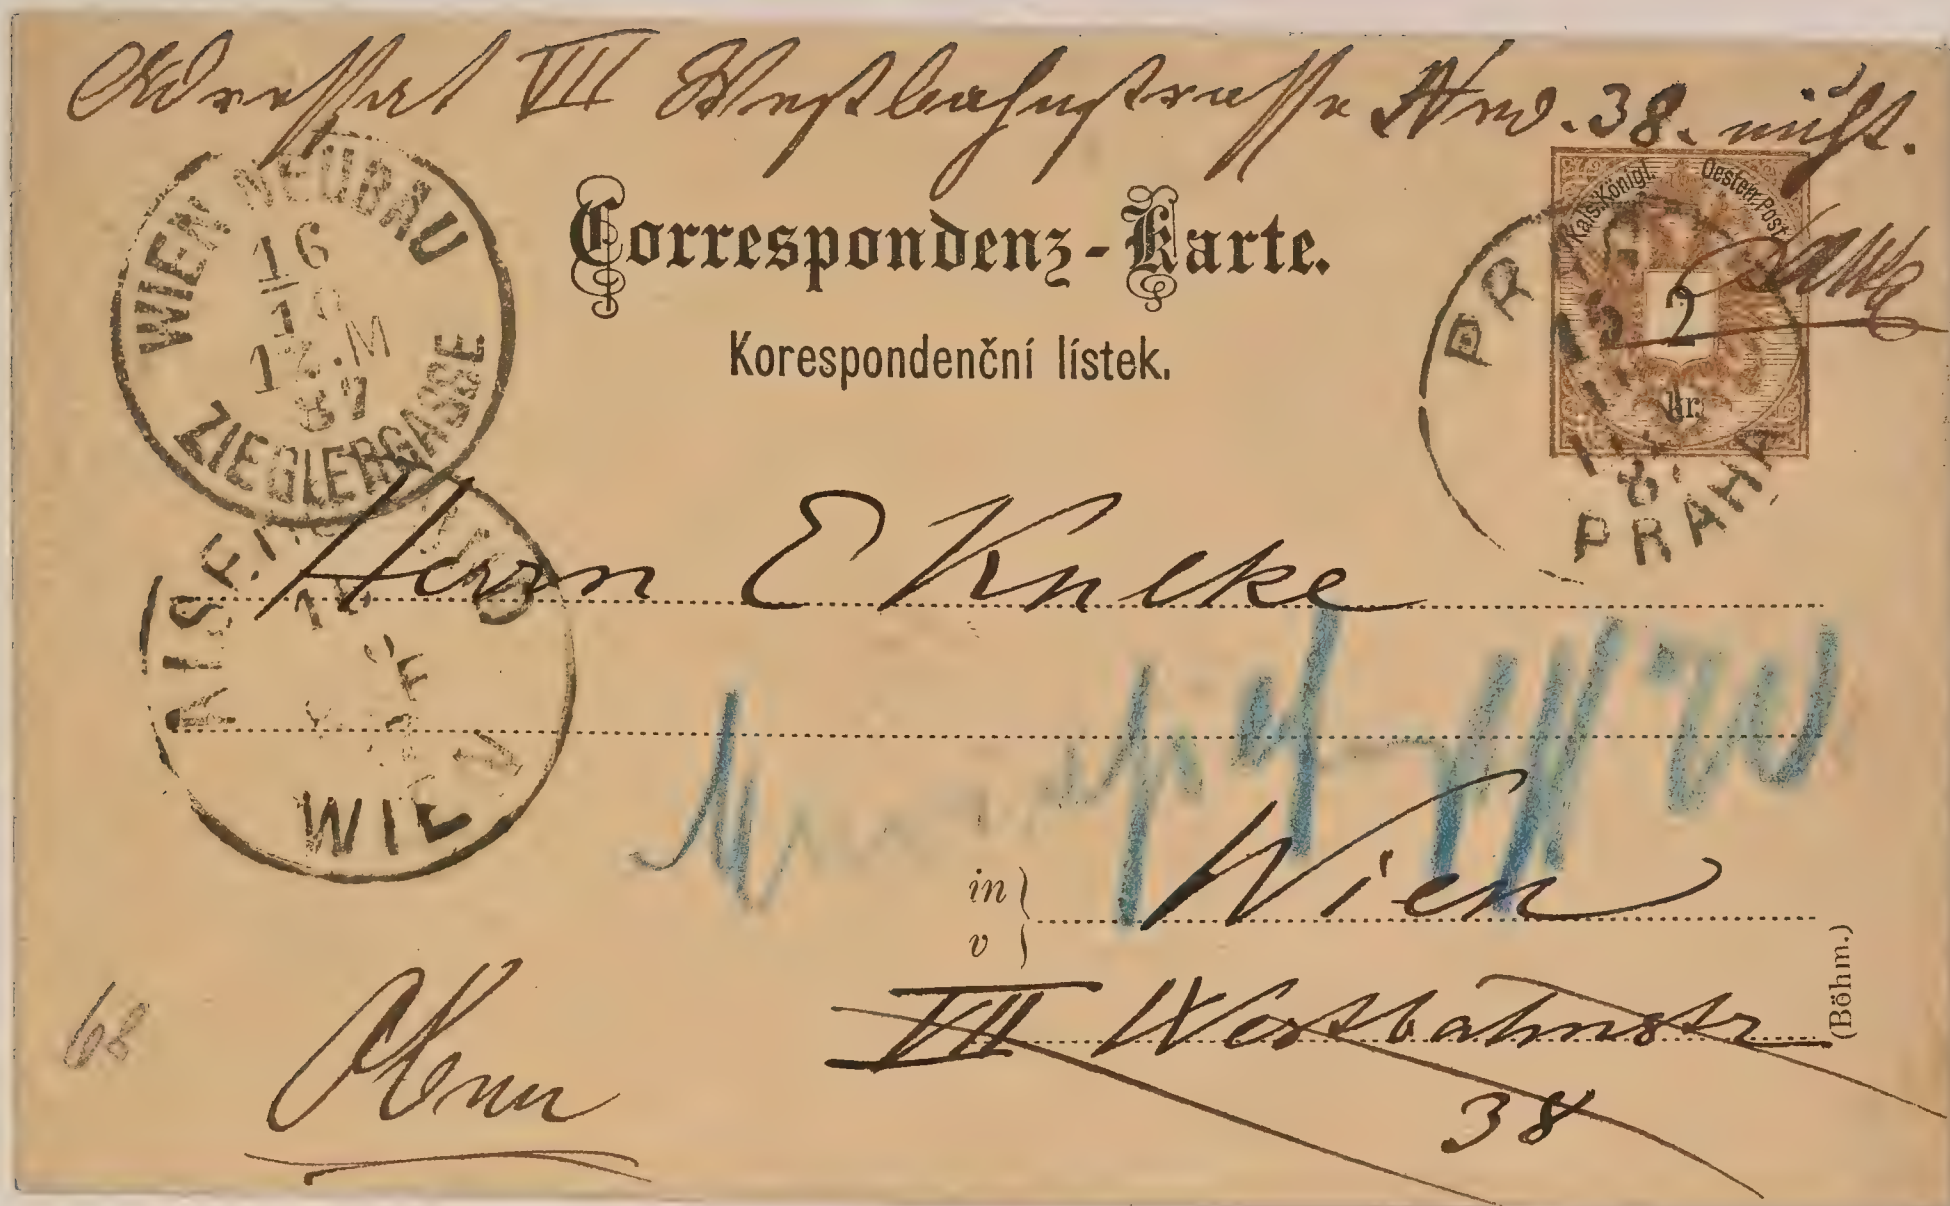 Adressat VII Westbahnstrasse Nro. 38. nicht.
WIEN NEUBAU
16
10
12.M
87
ZIEGLERGASSE
Correspondenz-Karte.
Korespondenční lístek.
Kais. Königl. Oesterr. Post
2
kr.
PRAHA
Herrn E Kulke
WIEN
in
v
Wien
VII Westbahnstr
38
(Böhm.)
68